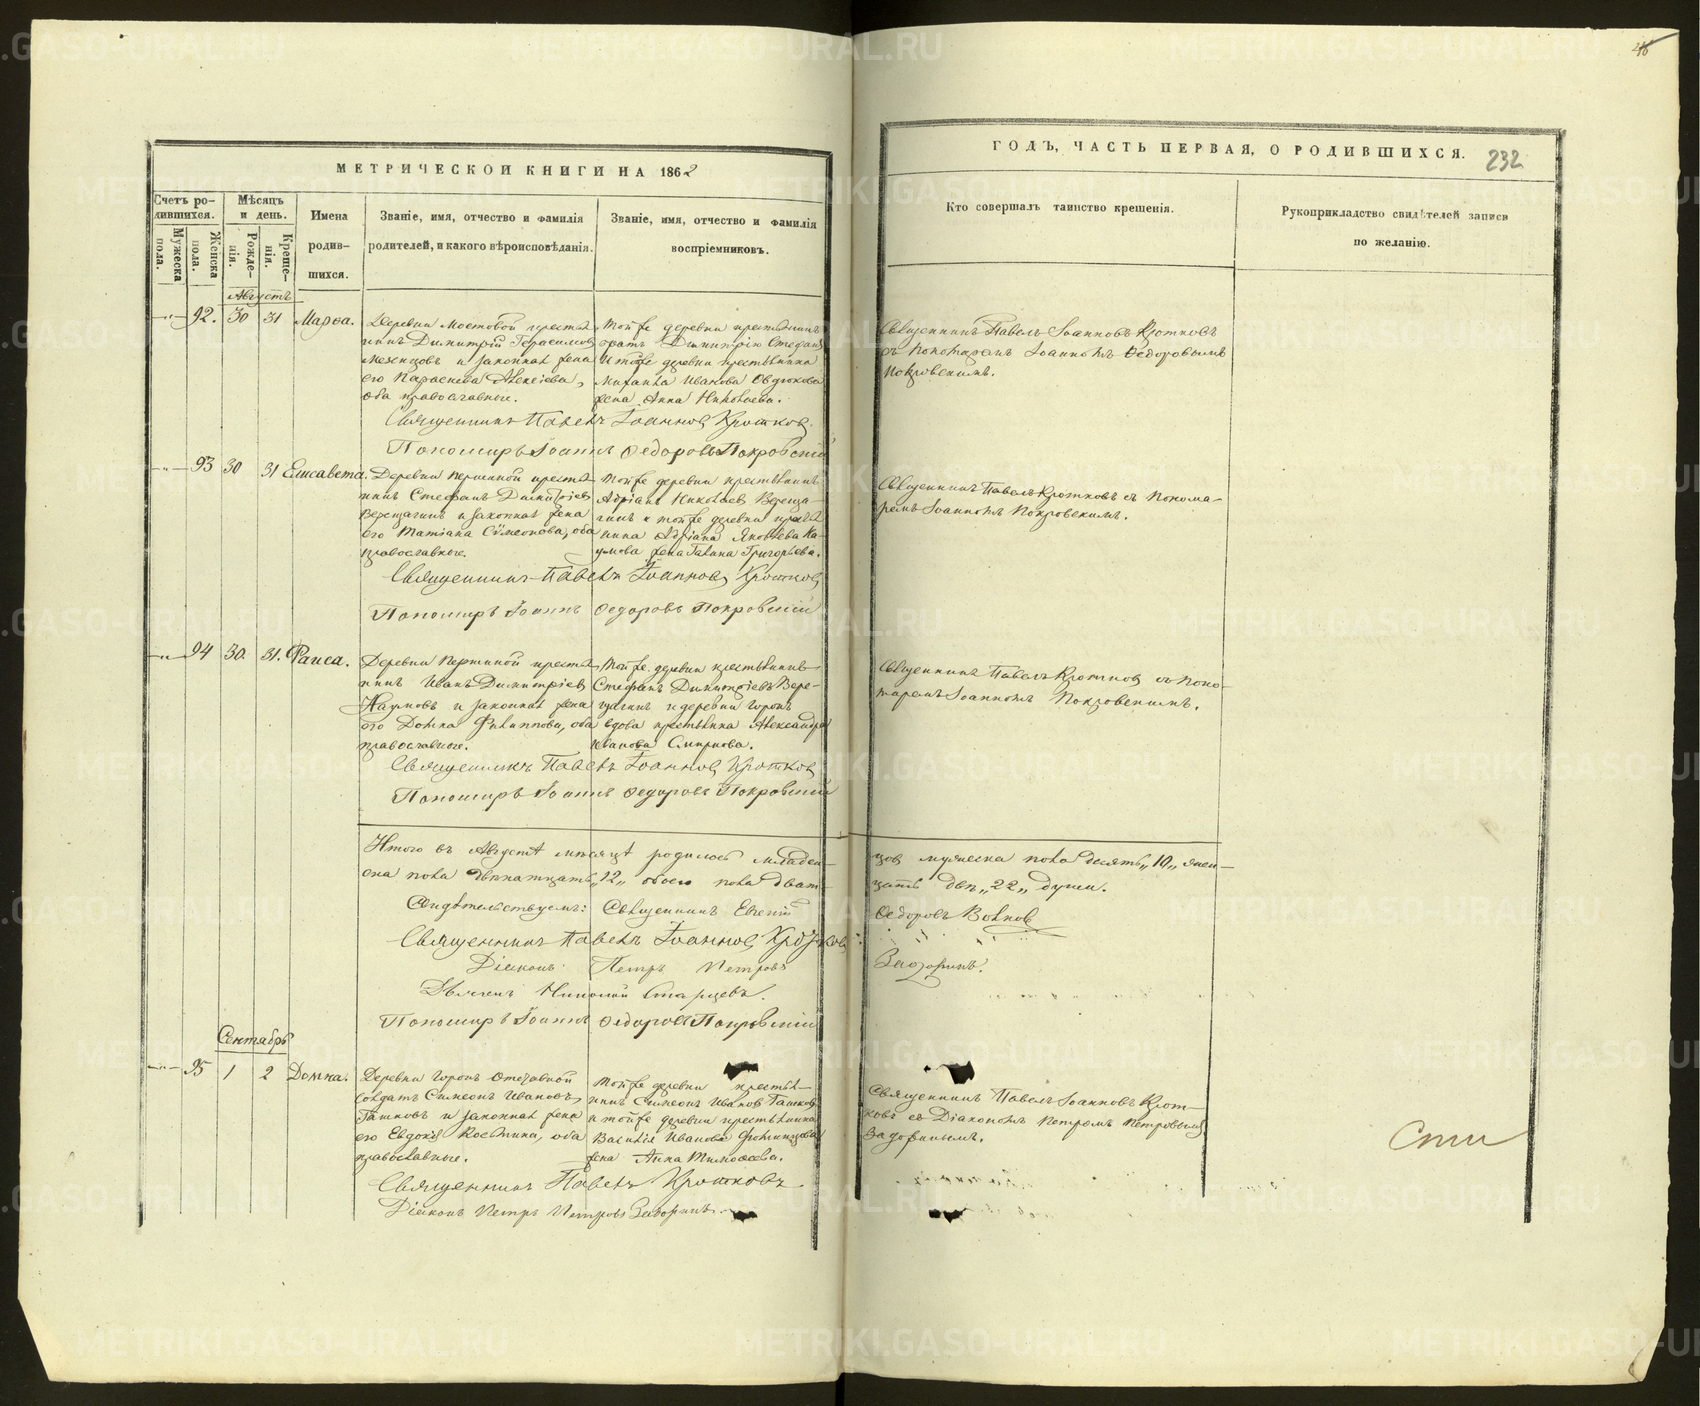 46
МЕТРИЧЕСКОЙ КНИГИ НА 1862
Счетъ ро-
дившихся.
Мужеска
пола.
Женска
пола.
Мѣсяцъ
и день.
Рожде-
нія.
Креще-
нія.
Имена
родив-
шихся.
Званіе, имя, отчество и фамилія
родителей, и какого вѣроисповѣданія.
Званіе, имя, отчество и фамилія
воспріемниковъ.
Августъ
92. 30 31 Марѳа.
Деревни Мостовой кресть-
нинъ Димитрій Герасимовъ
и законная жена
его Параскева Алексіева,
оба православные.
Тойже деревни крестьянинъ
Димитрій Стефан
и тойже деревни крестьянина
Михаила Иванова Овдюкова
жена Анна Николаева.
Священникъ Павелъ Іоанновъ Кротковъ.
Пономарь Іоаннъ Ѳедоровъ Покровскій
93 30 31 Елисавета.
Деревни Першиной кресть-
нинъ Стефанъ Димитріевъ
Верещагинъ и законная жена
его Татіана Сѵмеонова, оба
православные.
Тойже деревни крестьянинъ
Адріанъ Николаевъ Вереща-
гинъ и тойже деревни кресть-
нина Адріана Яковлева На-
умова жена Галина Григорьева.
Священникъ Павелъ Іоанновъ Кротковъ
Пономарь Іоаннъ Ѳедоровъ Покровскій
94 30. 31. Раиса.
Деревни Першиной кресть-
нинъ Иванъ Димитріевъ
Наумовъ и законная жена
его Домна Филиппова, оба
православные.
Тойже деревни крестьянинъ
Стефанъ Димитріевъ Вере-
щагинъ и деревни Горокъ
вдова крестьянка Александра
Иванова Смирнова.
Священникъ Павелъ Іоанновъ Кротковъ
Пономарь Іоаннъ Ѳедоровъ Покровскій
Итого въ Августѣ мѣсяцѣ родилось младен-
ска пола двѣнатцать „12„ обоего пола дват-
Свидѣтельствуемъ: Священникъ Евгеній
Священникъ Павелъ Іоанновъ Кротковъ
Діаконъ Петръ Петровъ
Дьячекъ Николай Старцевъ.
Пономарь Іоаннъ Ѳедоровъ Покровскій
Сентябрь
95 1 2 Домна.
Деревни Горокъ отставной
солдатъ Симеонъ Ивановъ
Гашковъ и законная жена
его Евдокія Костина, оба
православные.
Тойже деревни кресть-
нинъ Симеонъ Ивановъ Гашковъ
и тойже деревни крестьянина
Василія Иванова
жена Анна Тимоѳеева.
Священникъ Павелъ Кротковъ
Діаконъ Петръ Петровъ Задоринъ.
ГОДЪ, ЧАСТЬ ПЕРВАЯ, О РОДИВШИХСЯ.
232
Кто совершалъ таинство крещенія.
Рукоприкладство свидѣтелей записи
по желанію.
Священникъ Павелъ Іоанновъ Кротковъ
съ Пономаремъ Іоанномъ Ѳедоровымъ
Покровскимъ.
Священникъ Павелъ Кротковъ съ Понома-
ремъ Іоанномъ Покровскимъ.
Священникъ Павелъ Кротковъ съ Поно-
маремъ Іоанномъ Покровскимъ.
цовъ мужеска пола десять „10„ жен-
цать двѣ „22„ души.
Ѳедоровъ Волковъ
Задоринъ.
Священникъ Павелъ Іоанновъ Крот-
ковъ съ Діакономъ Петромъ Петровымъ
Задоринымъ.
METRIKI.GASO-URAL.RU